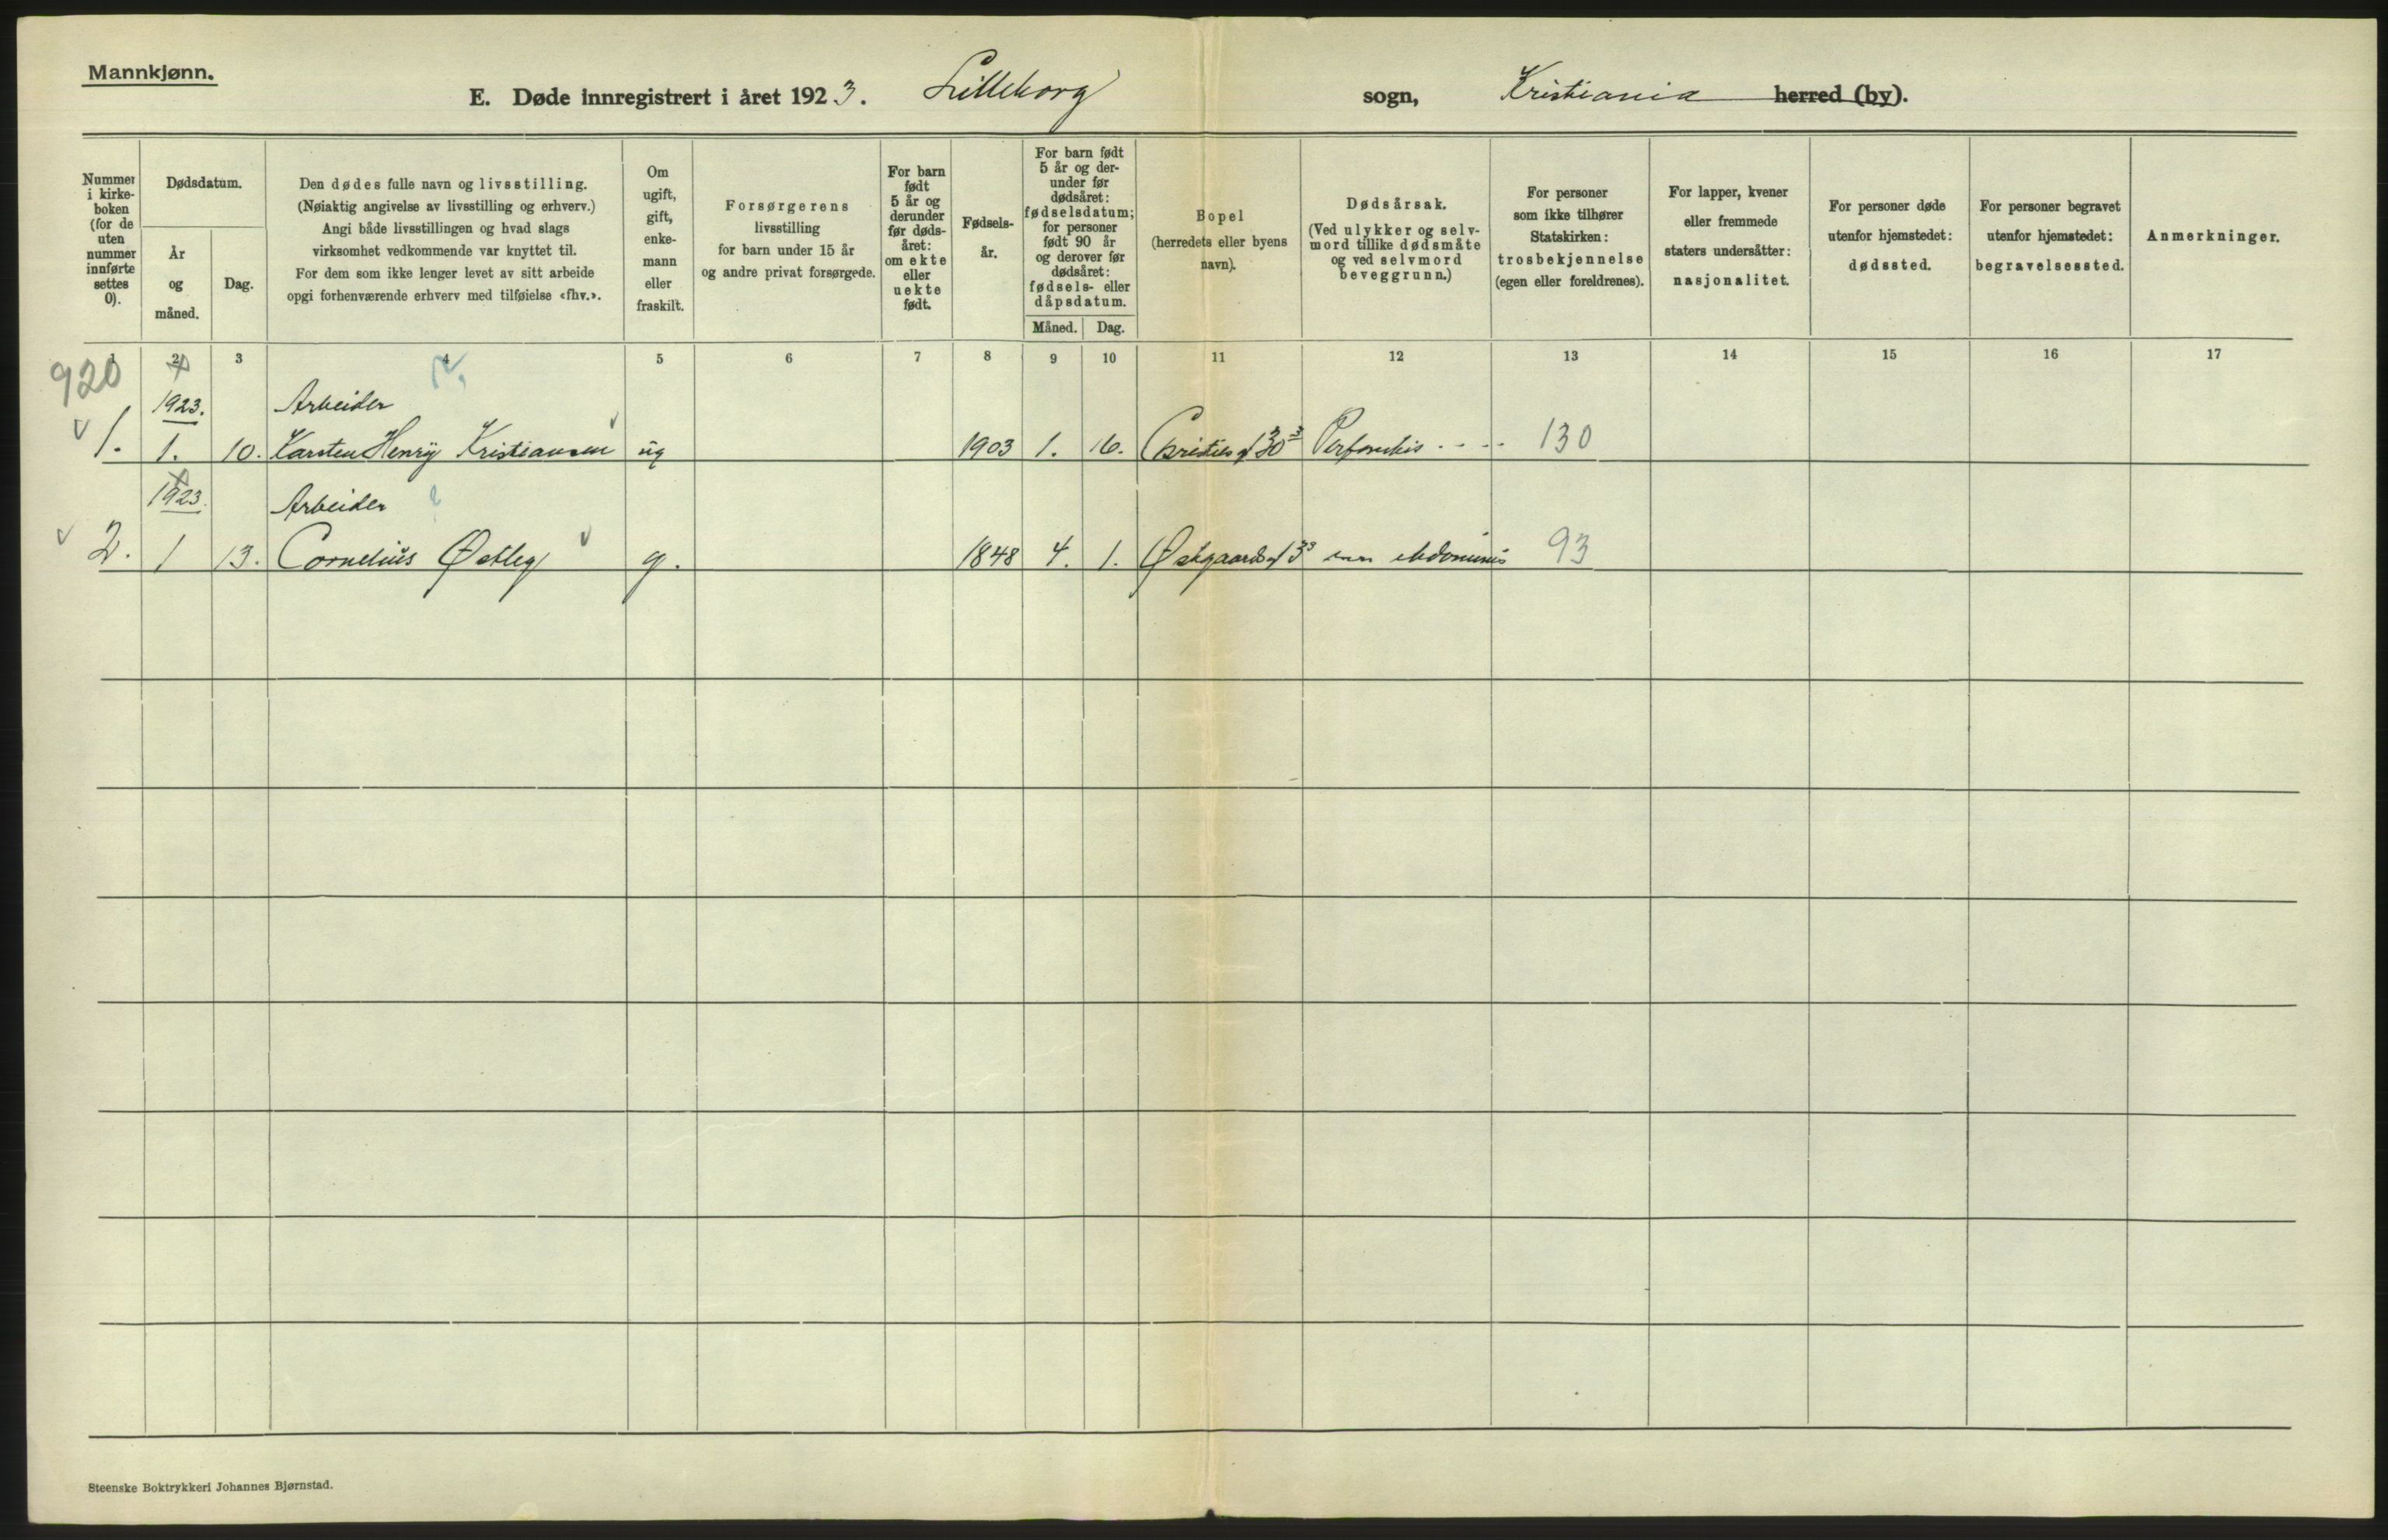 Mannkjønn.
E. Døde innregistrert i året 1923. Lilleborg sogn, Kristiania herred (by).
Nummer i kirke- boken (for de uten nummer innførte settes 0).
Dødsdatum.
År og måned.
Dag.
Den dødes fulle navn og livsstilling.
(Nøiaktig angivelse av livsstilling og erhverv.)
Angi både livsstillingen og hvad slags
virksomhet vedkommende var knyttet til.
For dem som ikke lenger levet av sitt arbeide
opgi forhenværende erhverv med tilføielse «fhv.».
Om ugift, gift, enke- mann eller fraskilt.
Forsørgerens
livsstilling
for barn under 15 år
og andre privat forsørgede.
For barn født 5 år og derunder før døds- året: om ekte eller uekte født.
Fødsels- år.
For barn født 5 år og der- under før dødsåret: fødselsdatum; for personer født 90 år og derover før dødsåret: fødsels- eller dåpsdatum.
Måned. Dag.
Bopel
(herredets eller byens
navn).
Dødsårsak.
(Ved ulykker og selv-
mord tillike dødsmåte
og ved selvmord
beveggrunn.)
For personer
som ikke tilhører
Statskirken:
trosbekjennelse
(egen eller foreldrenes).
For lapper, kvener
eller fremmede
staters undersåtter:
nasjonalitet.
For personer døde
utenfor hjemstedet:
dødssted.
For personer begravet
utenfor hjemstedet:
begravelsessted.
Anmerkninger.
1 2 3 4 5 6 7 8 9 10 11 12 13 14 15 16 17
920
1923. Arbeider
1. 1. 10. Karsten Henry Kristiansen ug 1903 1. 16. 130
1923. Arbeider
2. 1 13. Cornelius Østleg g. 1848 4. 1. Østgaardsg 3 abdominis 93
Steenske Boktrykkeri Johannes Bjørnstad.